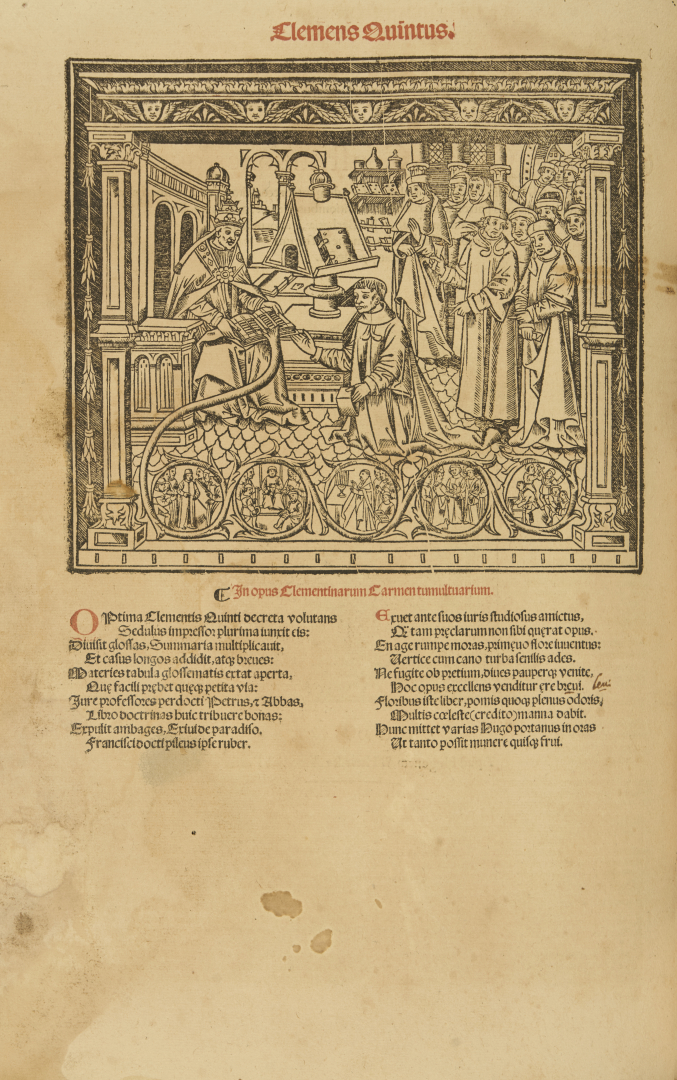 Clemens Quintus.
In opus Clementinarum Carmen tumultuarium.
OPtima Clementis Quinti decreta volutans
Sedulus impressor plurima iunxit eis:
Diuisit glossas, Summaria multiplicauit,
Et casus longos addidit, atqꝫ breues:
Materies tabula glossematis extat aperta,
Quę facili prębet quęqꝫ petita via:
Iure professores perdocti Petrus, ⁊ Abbas,
Libro doctrinas huic tribuere bonas:
Expulit ambages, Exiui de paradiso.
Francisci docti pileus ipse ruber.
Exuet ante suos iuris studiosus amictus,
Qꝫ tam pręclarum non sibi quęrat opus.
En age rumpe moras, primęuo flore iuuentus:
Vertice cum cano turba senilis ades.
Ne fugite ob pretium, diues pauperqꝫ venite,
Hoc opus excellens venditur ęre breui.
Floribus iste liber, pomis quoqꝫ plenus odoris,
Multis cœleste (credito) manna dabit.
Nunc mittet varias Hugo portanus in oras
Ut tanto possit munere quisqꝫ frui.